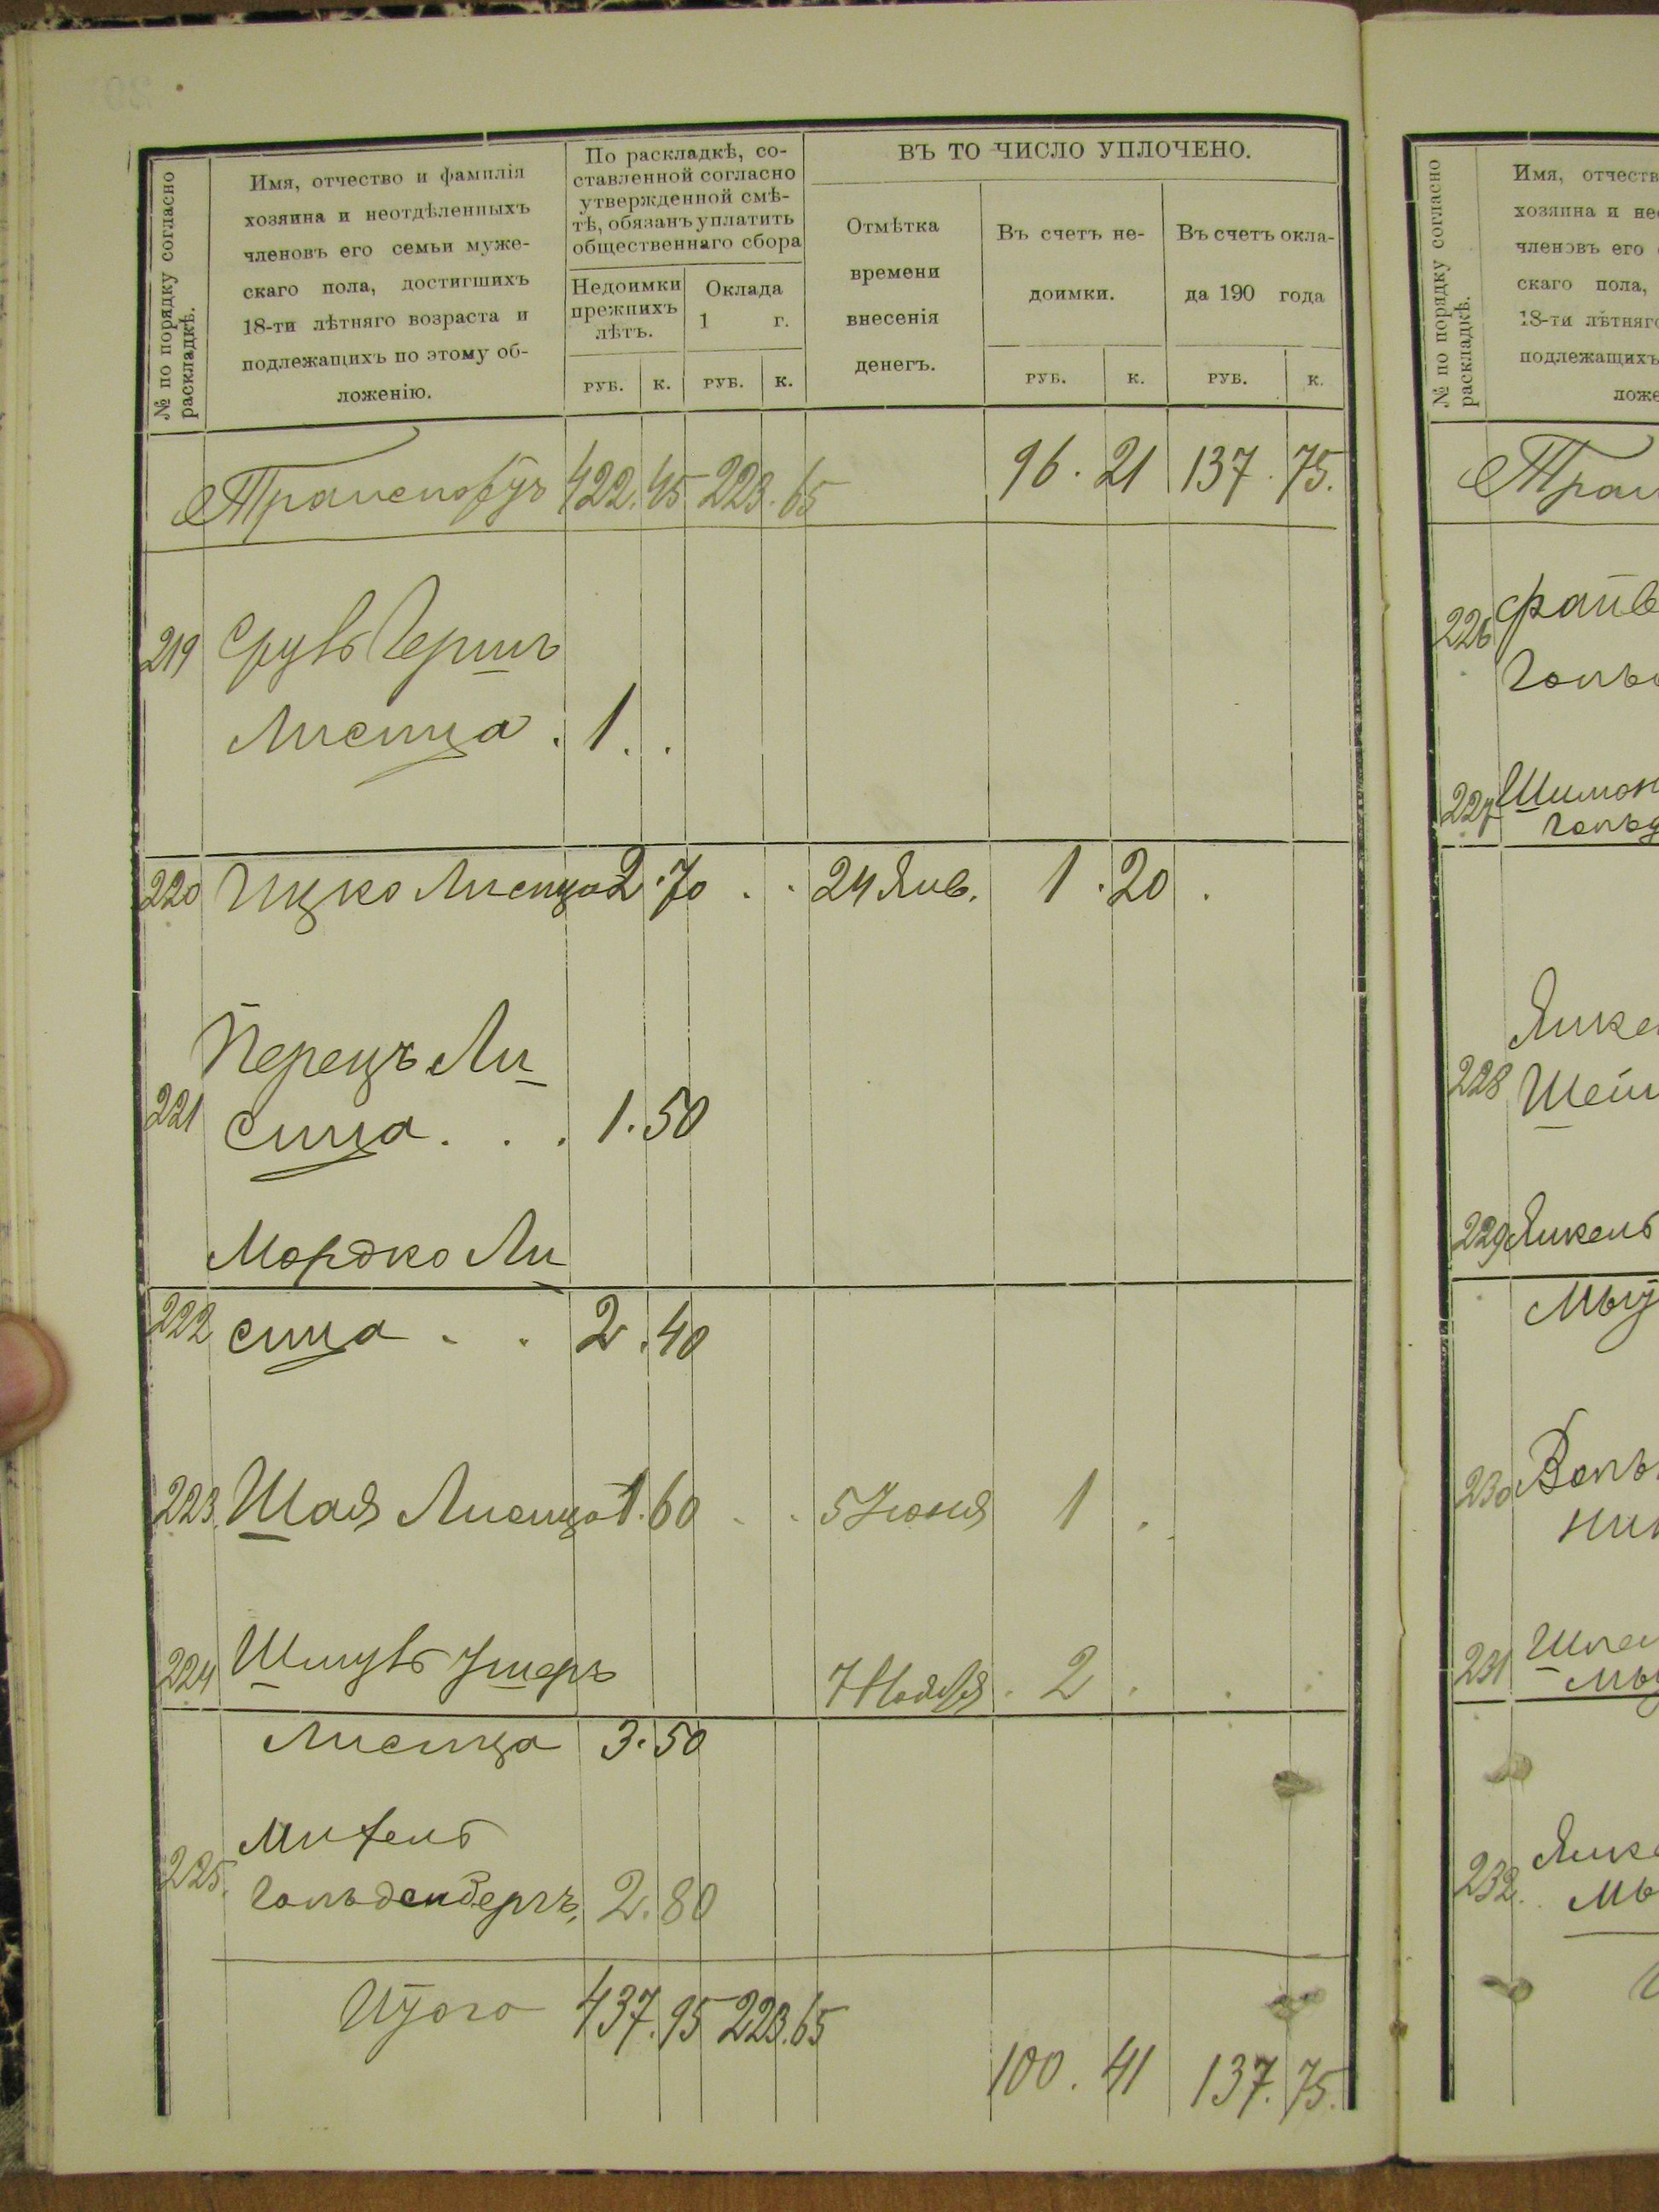 № по порядку согласно раскладкѣ.
Имя, отчество и фамилія
хозяина и неотдѣленныхъ
членовъ его семьи муже-
скаго пола, достигшихъ
18-ти лѣтняго возраста и
подлежащихъ по этому об-
ложенію.
По раскладкѣ, со-
ставленной согласно
утвержденной смѣ-
тѣ, обязанъ уплатить
общественнаго сбора
Недоимки
прежнихъ
лѣтъ.
Оклада
1 г.
РУБ. К. РУБ. К.
ВЪ ТО ЧИСЛО УПЛОЧЕНО.
Отмѣтка
времени
внесенія
денегъ.
Въ счетъ не-
доимки.
Въ счетъ окла-
да 190 года
РУБ. К. РУБ. К.
Транспортъ 422. 45 223. 65 96. 21 137. 75.
219 Сруль Гершъ
Лисица . 1 . .
220 Ицко Лисица 2.70 . . 24 Янв. 1.20 .
Перецъ Ли
221 сица . . . 1.50
Мордко Ли
222 сица . . 2.40
223. Шая Лисица 1.60 . . 5 Іюня 1 .
224 Шмуль Ушеръ 7 Ноября . 2 . . .
Лисица 3.50
Михель
225. Гольденбергъ, 2.80
Итого 437.95 223.65
100. 41 137. 75.
№ по порядку согласно раскладкѣ.
Имя, отчеств
хозяина и не
членовъ его
скаго пола,
18-ти лѣтняго
подлежащихъ
ложе
Тран
226 Файв
Голь
227 Шимон
Гольд
Янке
228 Шей
229 Янкель
230 Воль
ник
231
232. Янке